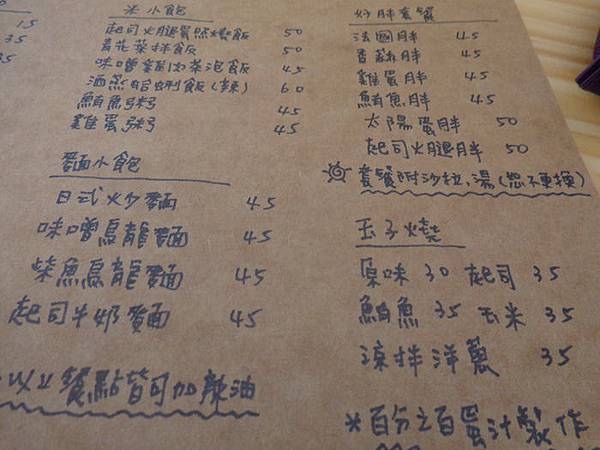 15
35
35
米小飽
起司火腿蛋燉燒飯 50
青花菜拌飯 50
味噌雞肉茶泡飯 45
酒蒸蛤蜊飯(辣) 60
鮪魚粥 45
雞蛋粥 45
麵小飽
日式炒麵 45
味噌烏龍麵 45
柴魚烏龍麵 45
起司牛奶麵 45
以上餐點皆可加辣油
好胖套餐
法國胖 45
香蒜胖 45
雞蛋胖 45
鮪魚胖 45
太陽蛋胖 50
起司火腿胖 50
套餐附沙拉、湯(恕不更換)
玉子燒
原味 30 起司 35
鮪魚 35 玉米 35
涼拌洋蔥 35
*百分之百蛋汁製作